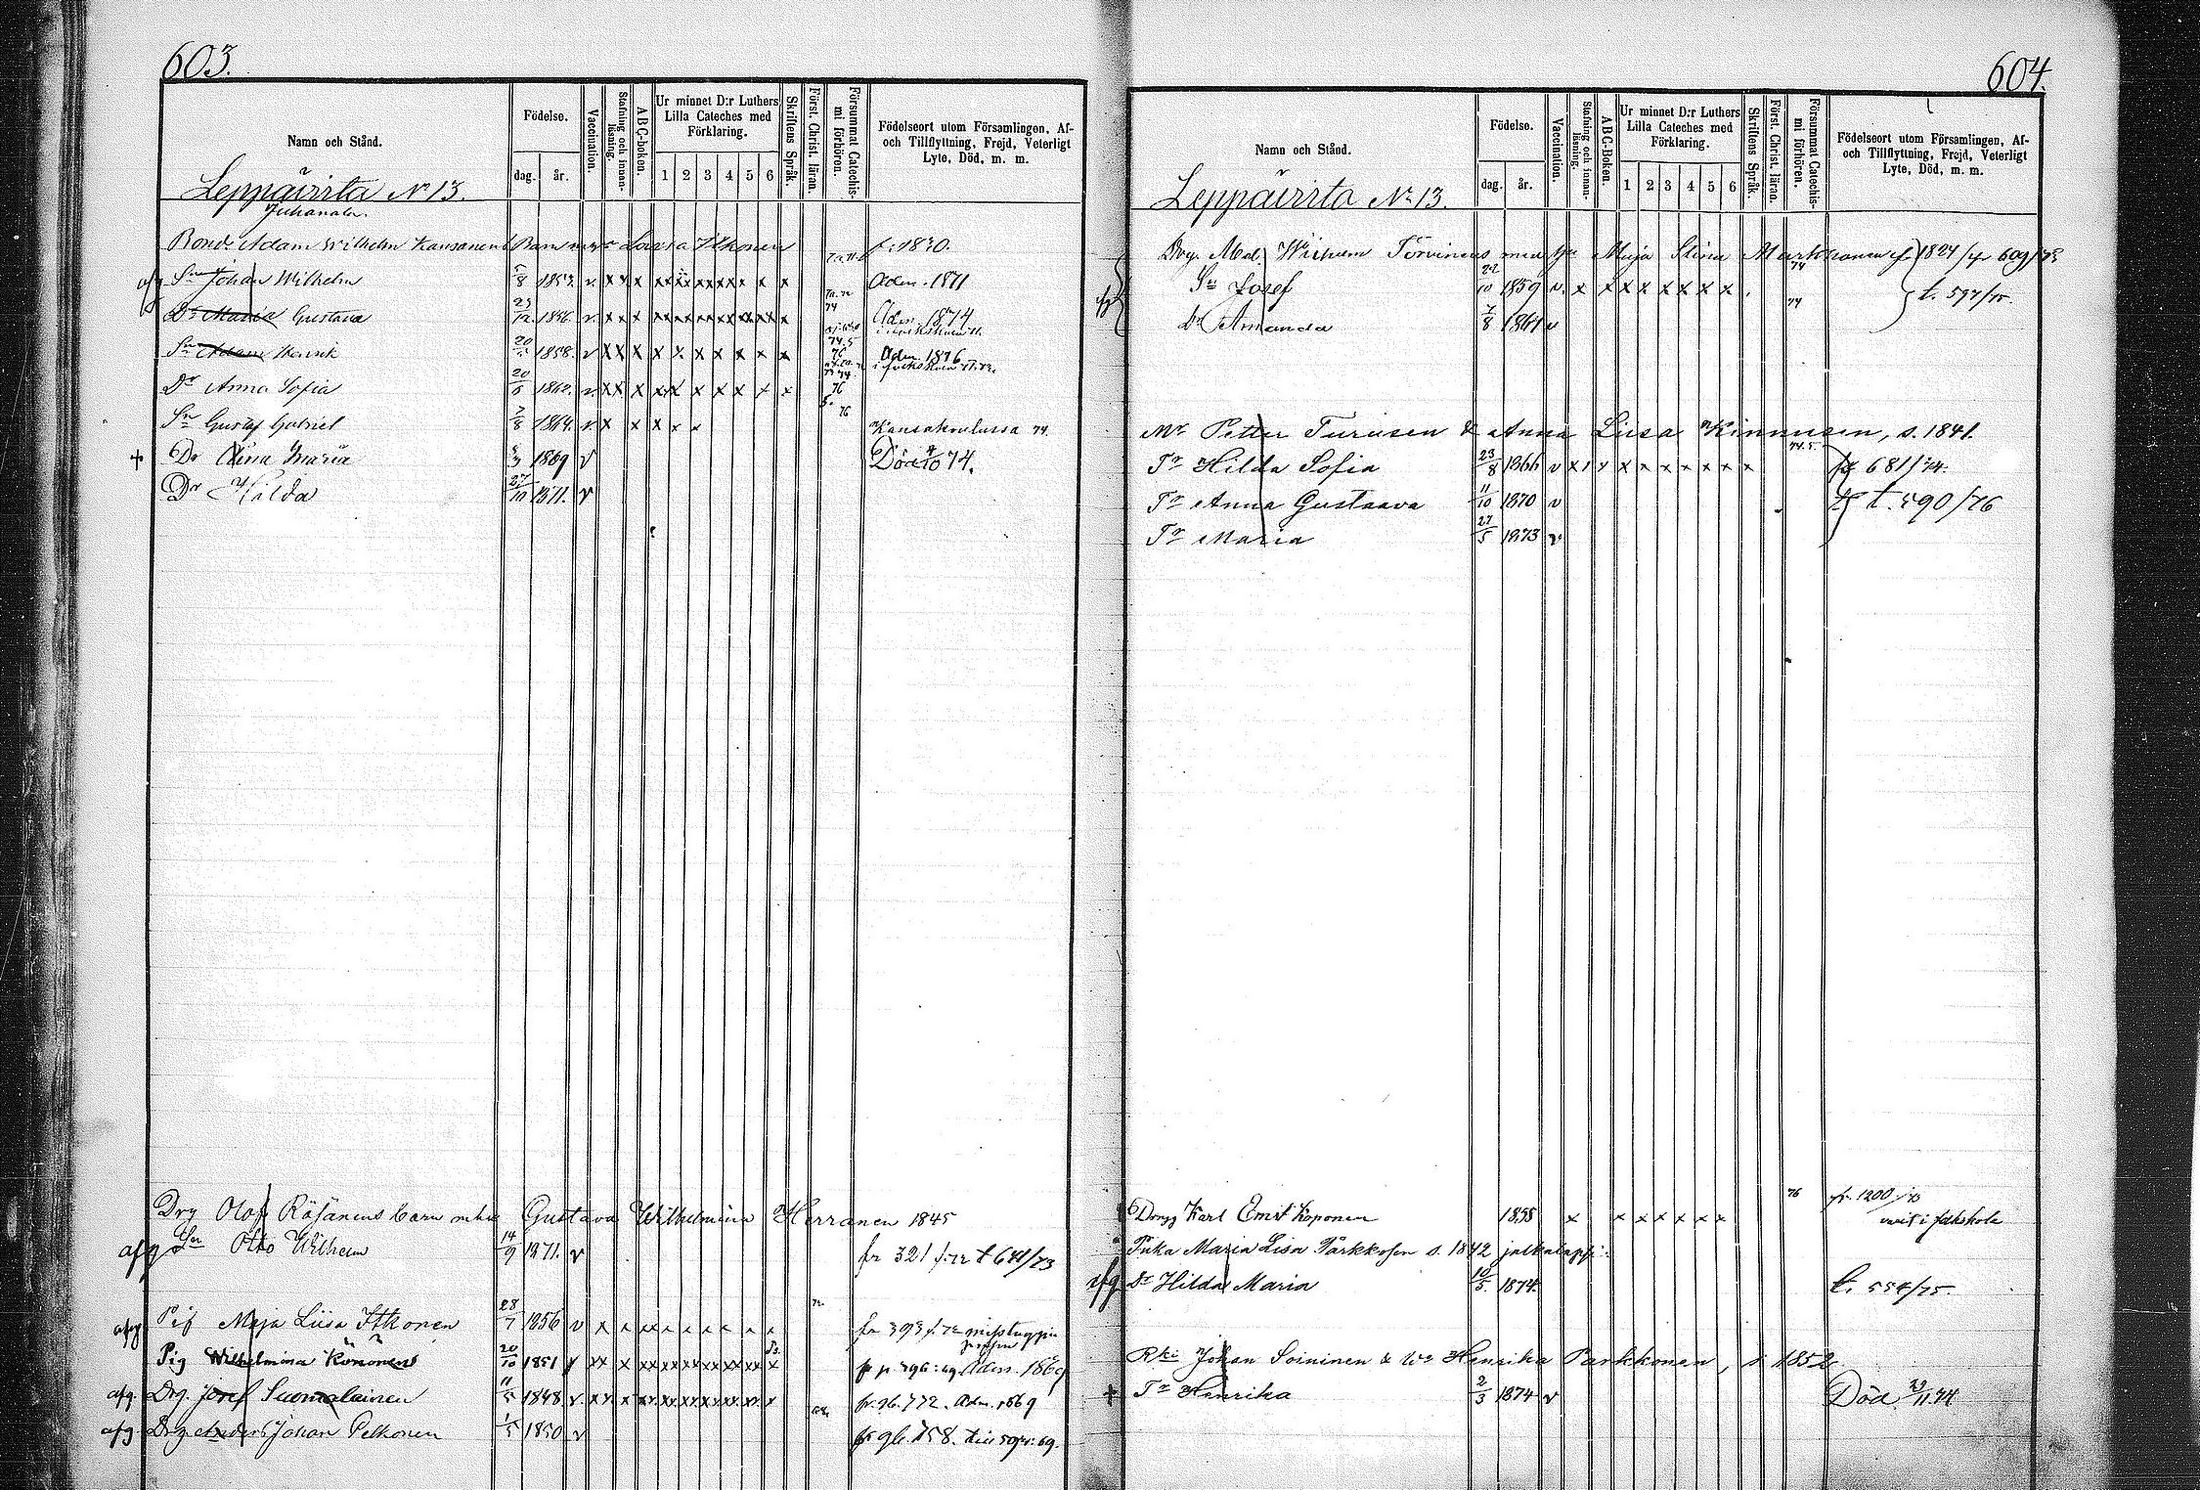 603.
Namn och Stånd.
Födelse.
dag. år.
Vaccination.
Stafning och innanläsning.
A B C-boken.
Ur minnet D:r Luthers Lilla Cateches med Förklaring.
1 2 3 4 5 6
Skriftens Språk.
Först. Christ. läran.
Försummat Catechismi förhören.
Födelseort utom Församlingen, Af- och Tillflyttning, Frejd, Veterligt Lyte, Död, m. m.
Leppävirta No 13.
Juhanala.
Adam Wilhelm Kansanens Barn Lovisa Itkonen f. 1830.
afg Sn Johan Wilhelm 5/8 1853. v. x x x x x x x x x x x Adm. 1871
Dr Maria Gustava 1856. v. x x x Adm. 1874
Sn Adam Henrik 1858. v x x x x x x x x x x Adm. 1876
Dr Anna Sofia 1862. v. x x x x x x x x x x 76
Sn Gustaf Gabriel 7/8 1864. v. x x x x x 76 Kansakoulussa 74.
+ Dr Maria 1869 v Död 74.
Dr Hilda 27/10 1871. v
Drg Olof Räsänens barn Gustava Wilhelmina Herranen 1845
afg Son Otto Wilhelm 14/9 1871. v fr 321 f. 72 t 641/73
afg Pig Maja Liisa Itkonen 28/7 1856 v x x x x x x x x x fr 393 f. 72
Pig Wilhelmina Könönen 20/10 1851 v x x x x x x x x x fr p 396: 69 Adm. 1869
afg. Drg. Josef Suomalainen 11/5 1848 v. x x x x x x x x x fr. gb. 772. Adm. 1869
afg Drg Anders Johan Pelkonen 1/5 1850 v fr gb. 758.
604.
Namn och Stånd.
Födelse.
dag. år.
Vaccination.
Stafning och innanläsning.
A B C-Boken.
Ur minnet D:r Luthers Lilla Cateches med Förklaring.
1 2 3 4 5 6
Skriftens Språk.
Först. Christ. läran.
Försummat Catechismi förhören.
Födelseort utom Församlingen, Af- och Tillflyttning, Frejd, Veterligt Lyte, Död, m. m.
Leppävirta No 13.
Wilhelm Törvinens med Maja Stina Markkanen f. 1824
afg Sn Josef 22/10 1859 v. x x x x x x x x 74 t. 597/75.
Dr Amanda 7/8 1861 v 74
Petter Turusen & Anna Liisa Kinnusen, s. 1841.
Tr Hilda Sofia 23/8 1866 v x x x x x x x x x x 74.5. 681/74.
Tr Anna Gustaava 11/10 1870 v t. 590/76
Tr Maria 27/5 1873 v
Karl Ernst Koponen 1858 x x x x x x x 76 fr. 1200/75
i folkskola
Maria Liisa Parkkosen s. 1842
afg Dr Hilda Maria 10/5. 1874. t. 554/75.
Johan Soininen & Henrika Parkkonen, s 1852
+ Tr Henrika 2/3 1874 v Död 74